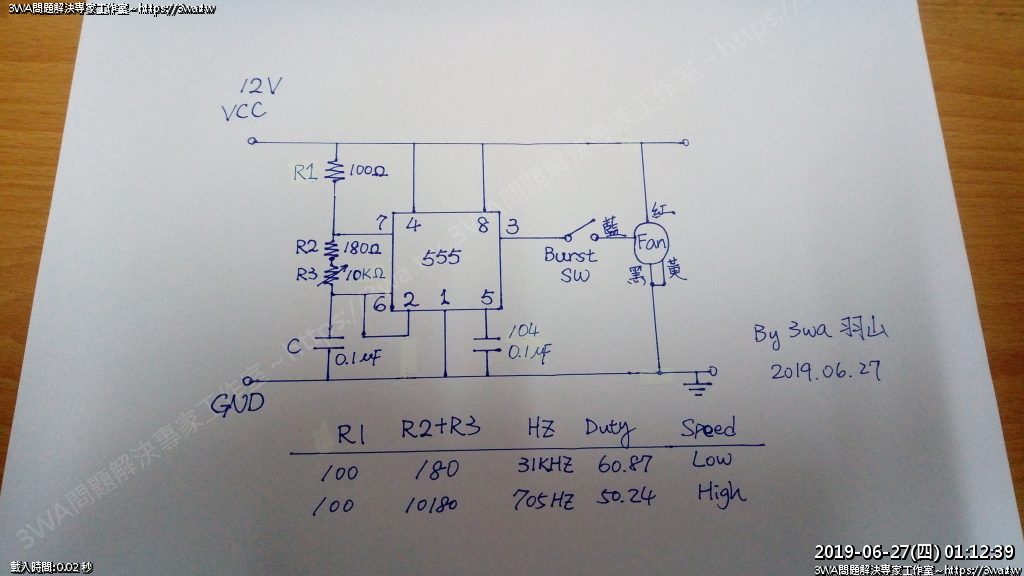 3WA問題解決專家工作室~https://3wa.tw
12V
VCC
R1 100Ω
7 4 8 3
藍 紅
R2 180Ω
555
Fan
Burst
SW
R3 10KΩ
黑 黃
6 2 1 5
104
C 0.1μF
0.1μF
By 3wa 羽山
2019.06.27
GND
R1 R2+R3 HZ Duty Speed
100 180 31KHZ 60.87 Low
100 10180 705HZ 50.24 High
3WA問題解決專家工作室~https://3wa.tw
載入時間:0.02 秒
2019-06-27(四) 01:12:39
3WA問題解決專家工作室~https://3wa.tw